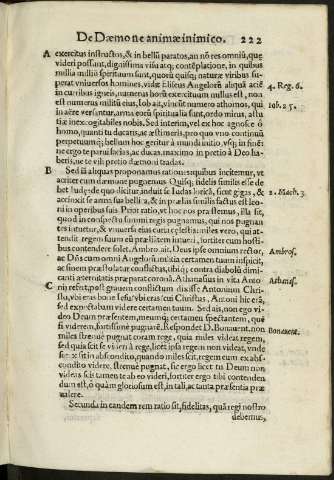 De Dæmone animæ inimico. 222
A exercitus instructos, & in bellũ paratos, an nõ res omniũ, quę
videri possunt, dignissima visu atq; contẽplatione, in quibus
millia milliũ spirituum sunt, quorũ quisq; naturæ viribus su-
perat vniuersos homines, vidit Eliseus Angelorũ aliquã aciẽ 4. Reg. 6.
in curribus igneis, numerus horũ exercituum nullus est, non
est numerus militũ eius, Iob ait, vincũt numero athomos, qui Iob. 25.
in aëre versantur, arma eorũ spiritualia sunt, ordo mirus, astu
tiæ inexcogitabiles nobis. Sed interim, vel ex hoc agnosce ô
homo, quanti tu ducaris, ac æstimeris, pro quo viuo continuũ
perpetuumq; bellum hoc geritur à mundi initio, vsq; in finẽ:
ne ergo te parui facias, ac ducas, maximo in pretio à Deo ha-
beris, ne te vili pretio dæmoni tradas.
B Sed iã aliquas proponamus rationes quibus incitemur, vt
acriter cum dæmone pugnemus Quisq; fidelis similis esse de
bet Iudę: de quo dicitur induit se Iudas loricã, sicut gigas, & 2. Mach. 3.
accinxit se arma sua bellica, & in prælijs similis factus est leo-
ni in operibus suis. Prior ratio, vt hoc nos præstemus, illa sit,
quod in conspectu summi regis pugnamus, qui nos pugnan
tes intuetur, & vniuersa eius curia cęlestis: miles vero, qui at-
tendit regem suum eũ præliãtem intueri, fortiter cum hosti-
bus contendere solet. Ambro. ait. Deus ipse omnium rector, Ambros.
ac Dñs cum omni Angelorũ militia certamen tuum inspicit,
ac finem præstolatur conflictus, tibiq; contra diabolũ dimi-
canti æternitatis præparat coronã. Athanasius in vita Anto Athanas.
C nij refert, post grauem conflictum dixisse Antonium Chri-
sto, vbi eras bone Iesu? vbi eras? cui Christus, Antoni hic erã,
sed expectabam videre certamen tuum. Sed ais, non ego vi-
deo Deum præsentem, meumq; certamen spectantem, quẽ
si viderem, fortissimè pugnarẽ. Respondet D. Bonauent. non Bonauent.
miles strenuè pugnat coram rege, quia miles videat regem,
sed quia scit se videri à rege, licet ipsa regem non videat, vnde
rex sit in abscondito, quando miles scit, regem eum ex abs-
condito videre, strenuè pugnat, sic ergo licet tu Deum non
videas scis tamen te ab eo videri, fortiter ergo tibi contenden
dum est, ô quàm gloriosum est, in tali, ac tanta præsentia præ
ualere.
Secunda in eandem rem ratio sit, fidelitas, quã regi nostro
debemus,